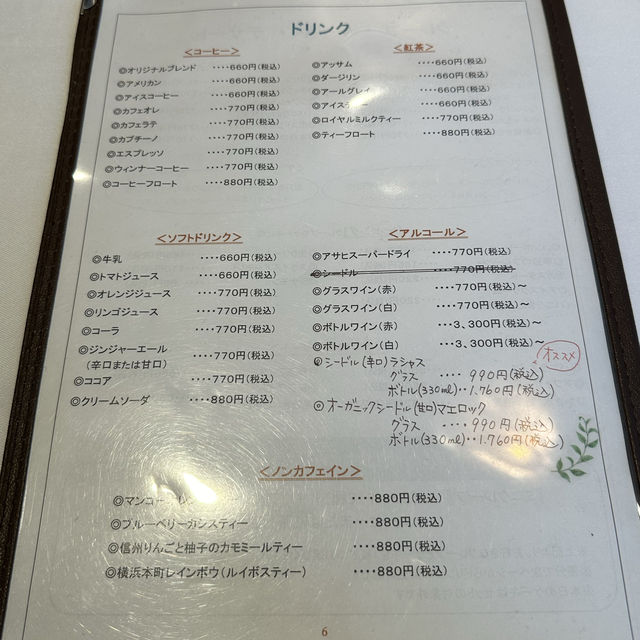 ドリンク
<コーヒー>
◎オリジナルブレンド ････660円(税込)
◎アメリカン ････660円(税込)
◎アイスコーヒー ････660円(税込)
◎カフェオレ ････770円(税込)
◎カフェラテ ････770円(税込)
◎カプチーノ ････770円(税込)
◎エスプレッソ ････770円(税込)
◎ウィンナーコーヒー ････770円(税込)
◎コーヒーフロート ････880円(税込)
<紅茶>
◎アッサム ････660円(税込)
◎ダージリン ････660円(税込)
◎アールグレイ ････660円(税込)
◎アイスティー ････660円(税込)
◎ロイヤルミルクティー ････770円(税込)
◎ティーフロート ････880円(税込)
<ソフトドリンク>
◎牛乳 ････660円(税込)
◎トマトジュース ････660円(税込)
◎オレンジジュース ････770円(税込)
◎リンゴジュース ････770円(税込)
◎コーラ ････770円(税込)
◎ジンジャーエール ････770円(税込)
(辛口または甘口)
◎ココア ････770円(税込)
◎クリームソーダ ････880円(税込)
<アルコール>
◎アサヒスーパードライ ････770円(税込)
◎シードル ････770円(税込)
◎グラスワイン(赤) ････770円(税込)～
◎グラスワイン(白) ････770円(税込)～
◎ボトルワイン(赤) ･･･3,300円(税込)～
◎ボトルワイン(白) ･･･3,300円(税込)～
オススメ
◎シードル(辛口)ラシャス
グラス ････990円(税込)
ボトル(330ml)･･1,760円(税込)
◎オーガニックシードル(甘口)マエロック
グラス ････990円(税込)
ボトル(330ml)･･1,760円(税込)
<ノンカフェイン>
◎マンゴー ････880円(税込)
◎ブルーベリーカシスティー ････880円(税込)
◎信州りんごと柚子のカモミールティー ････880円(税込)
◎横浜本町レインボウ(ルイボスティー) ････880円(税込)
6